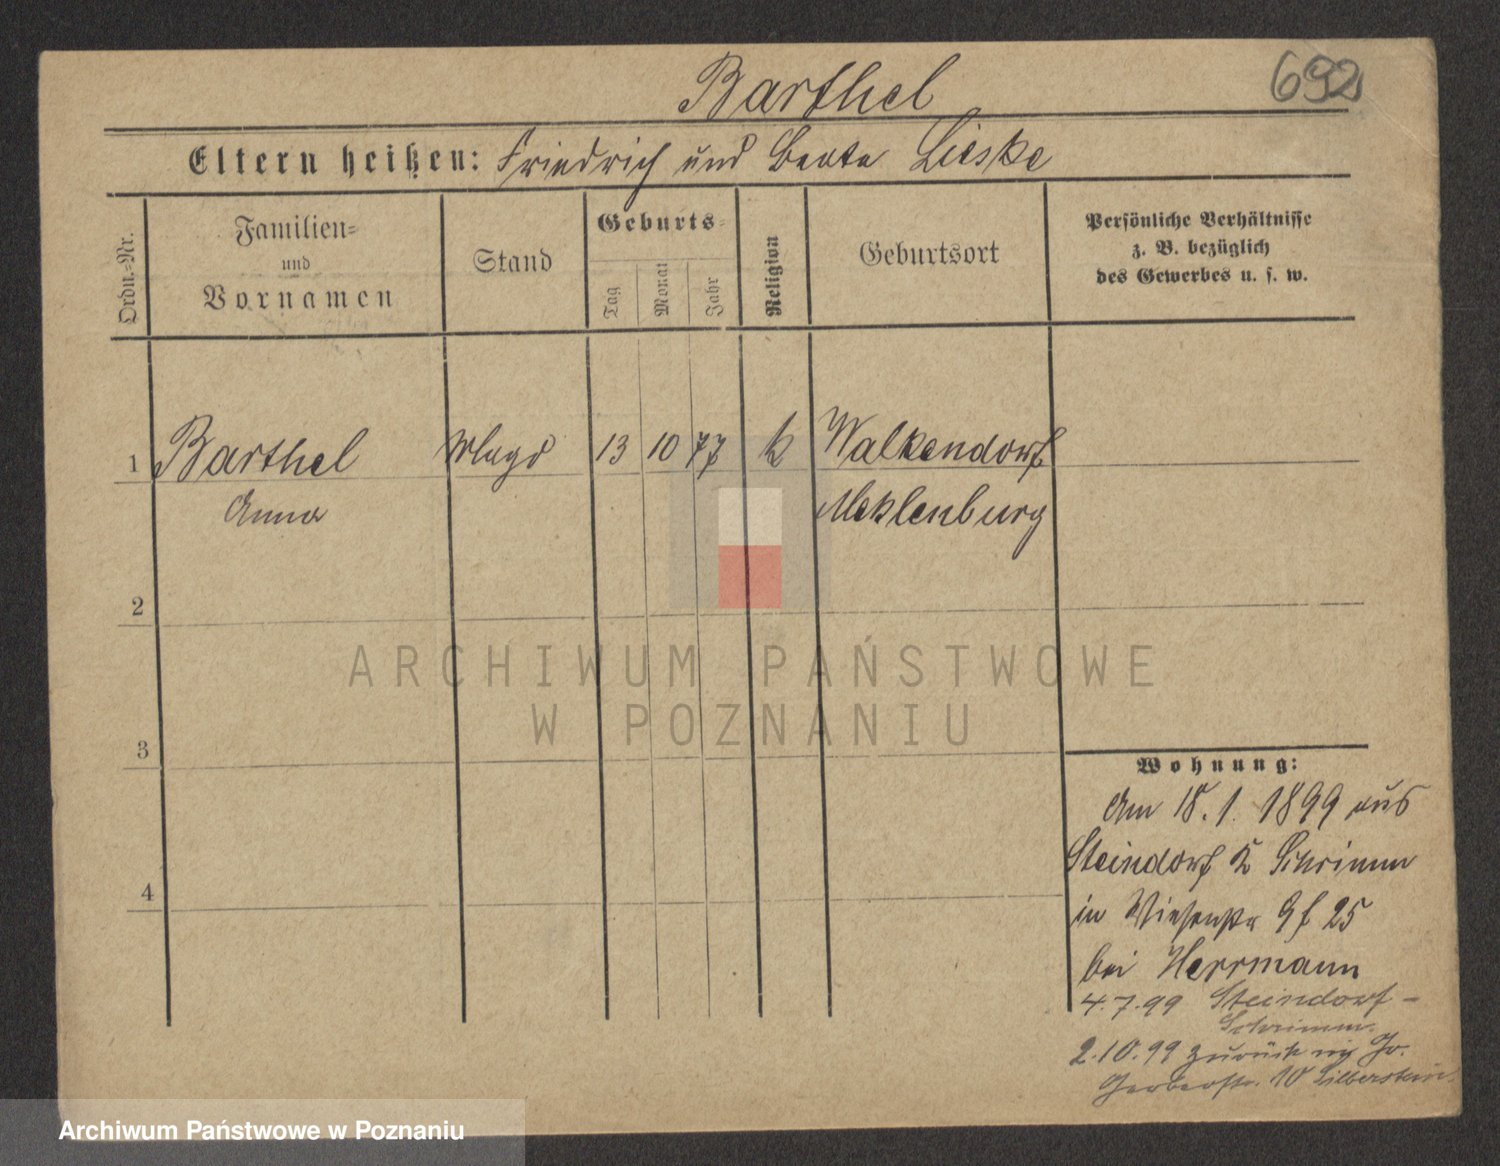 692
Barthel
Eltern heißen: Friedrich und Beate Lieske
Ordn.-Nr.
Familien-
und
Vornamen
Stand
Geburts-
Tag
Monat
Jahr
Religion
Geburtsort
Persönliche Verhältnisse
z. B. bezüglich
des Gewerbes u. s. w.
1 Barthel Magd 13 10 77 k Walkendorf
Anna Meklenburg
2
3
4
Wohnung:
Am 18. 1. 1899 aus
Steindorf K Schrimm
in Wiesenstr 9 f 25
bei Herrmann
4.7.99 Steindorf -
Schrimm.
2.10.99 zurück in Gr.
Gerberstr. 10 Silberstein.
ARCHIWUM PAŃSTWOWE
W POZNANIU
Archiwum Państwowe w Poznaniu